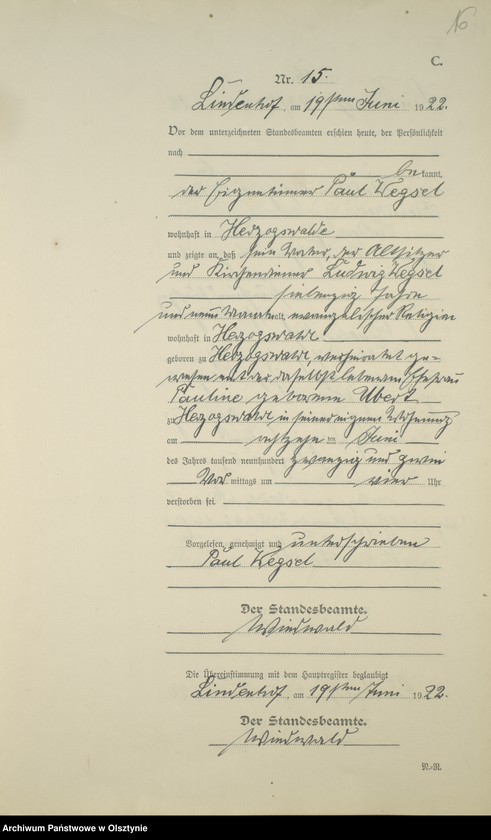 16
C.
Nr. 15.
Lindenhof, am 19ten Juni 1922.
Vor dem unterzeichneten Standesbeamten erschien heute, der Persönlichkeit
nach
bekannt,
der Eigentümer Paul Kegsel
wohnhaft in Herzogswalde
und zeigte an, daß sein Vater, der Altsitzer
und Kirchendiener Ludwig Kegsel
siebenzig Jahre
und neun Monate alt, evangelischer Religion
wohnhaft in Herzogswalde
geboren zu Herzogswalde, verheiratet ge-
wesen mit der daselbst lebenden Ehefrau
Pauline geborene Ubert
zu Herzogswalde in seiner eigenen Wohnung
am achtzehn ten Juni
des Jahres tausend neunhundert zwanzig und zwei
Vor mittags um vier Uhr
verstorben sei.
Vorgelesen, genehmigt und unterschrieben
Paul Kegsel
Der Standesbeamte.
Windwald
Die Übereinstimmung mit dem Hauptregister beglaubigt
Lindenhof, am 19ten Juni 1922.
Der Standesbeamte.
Windwald
N.-R.
Archiwum Państwowe w Olsztynie